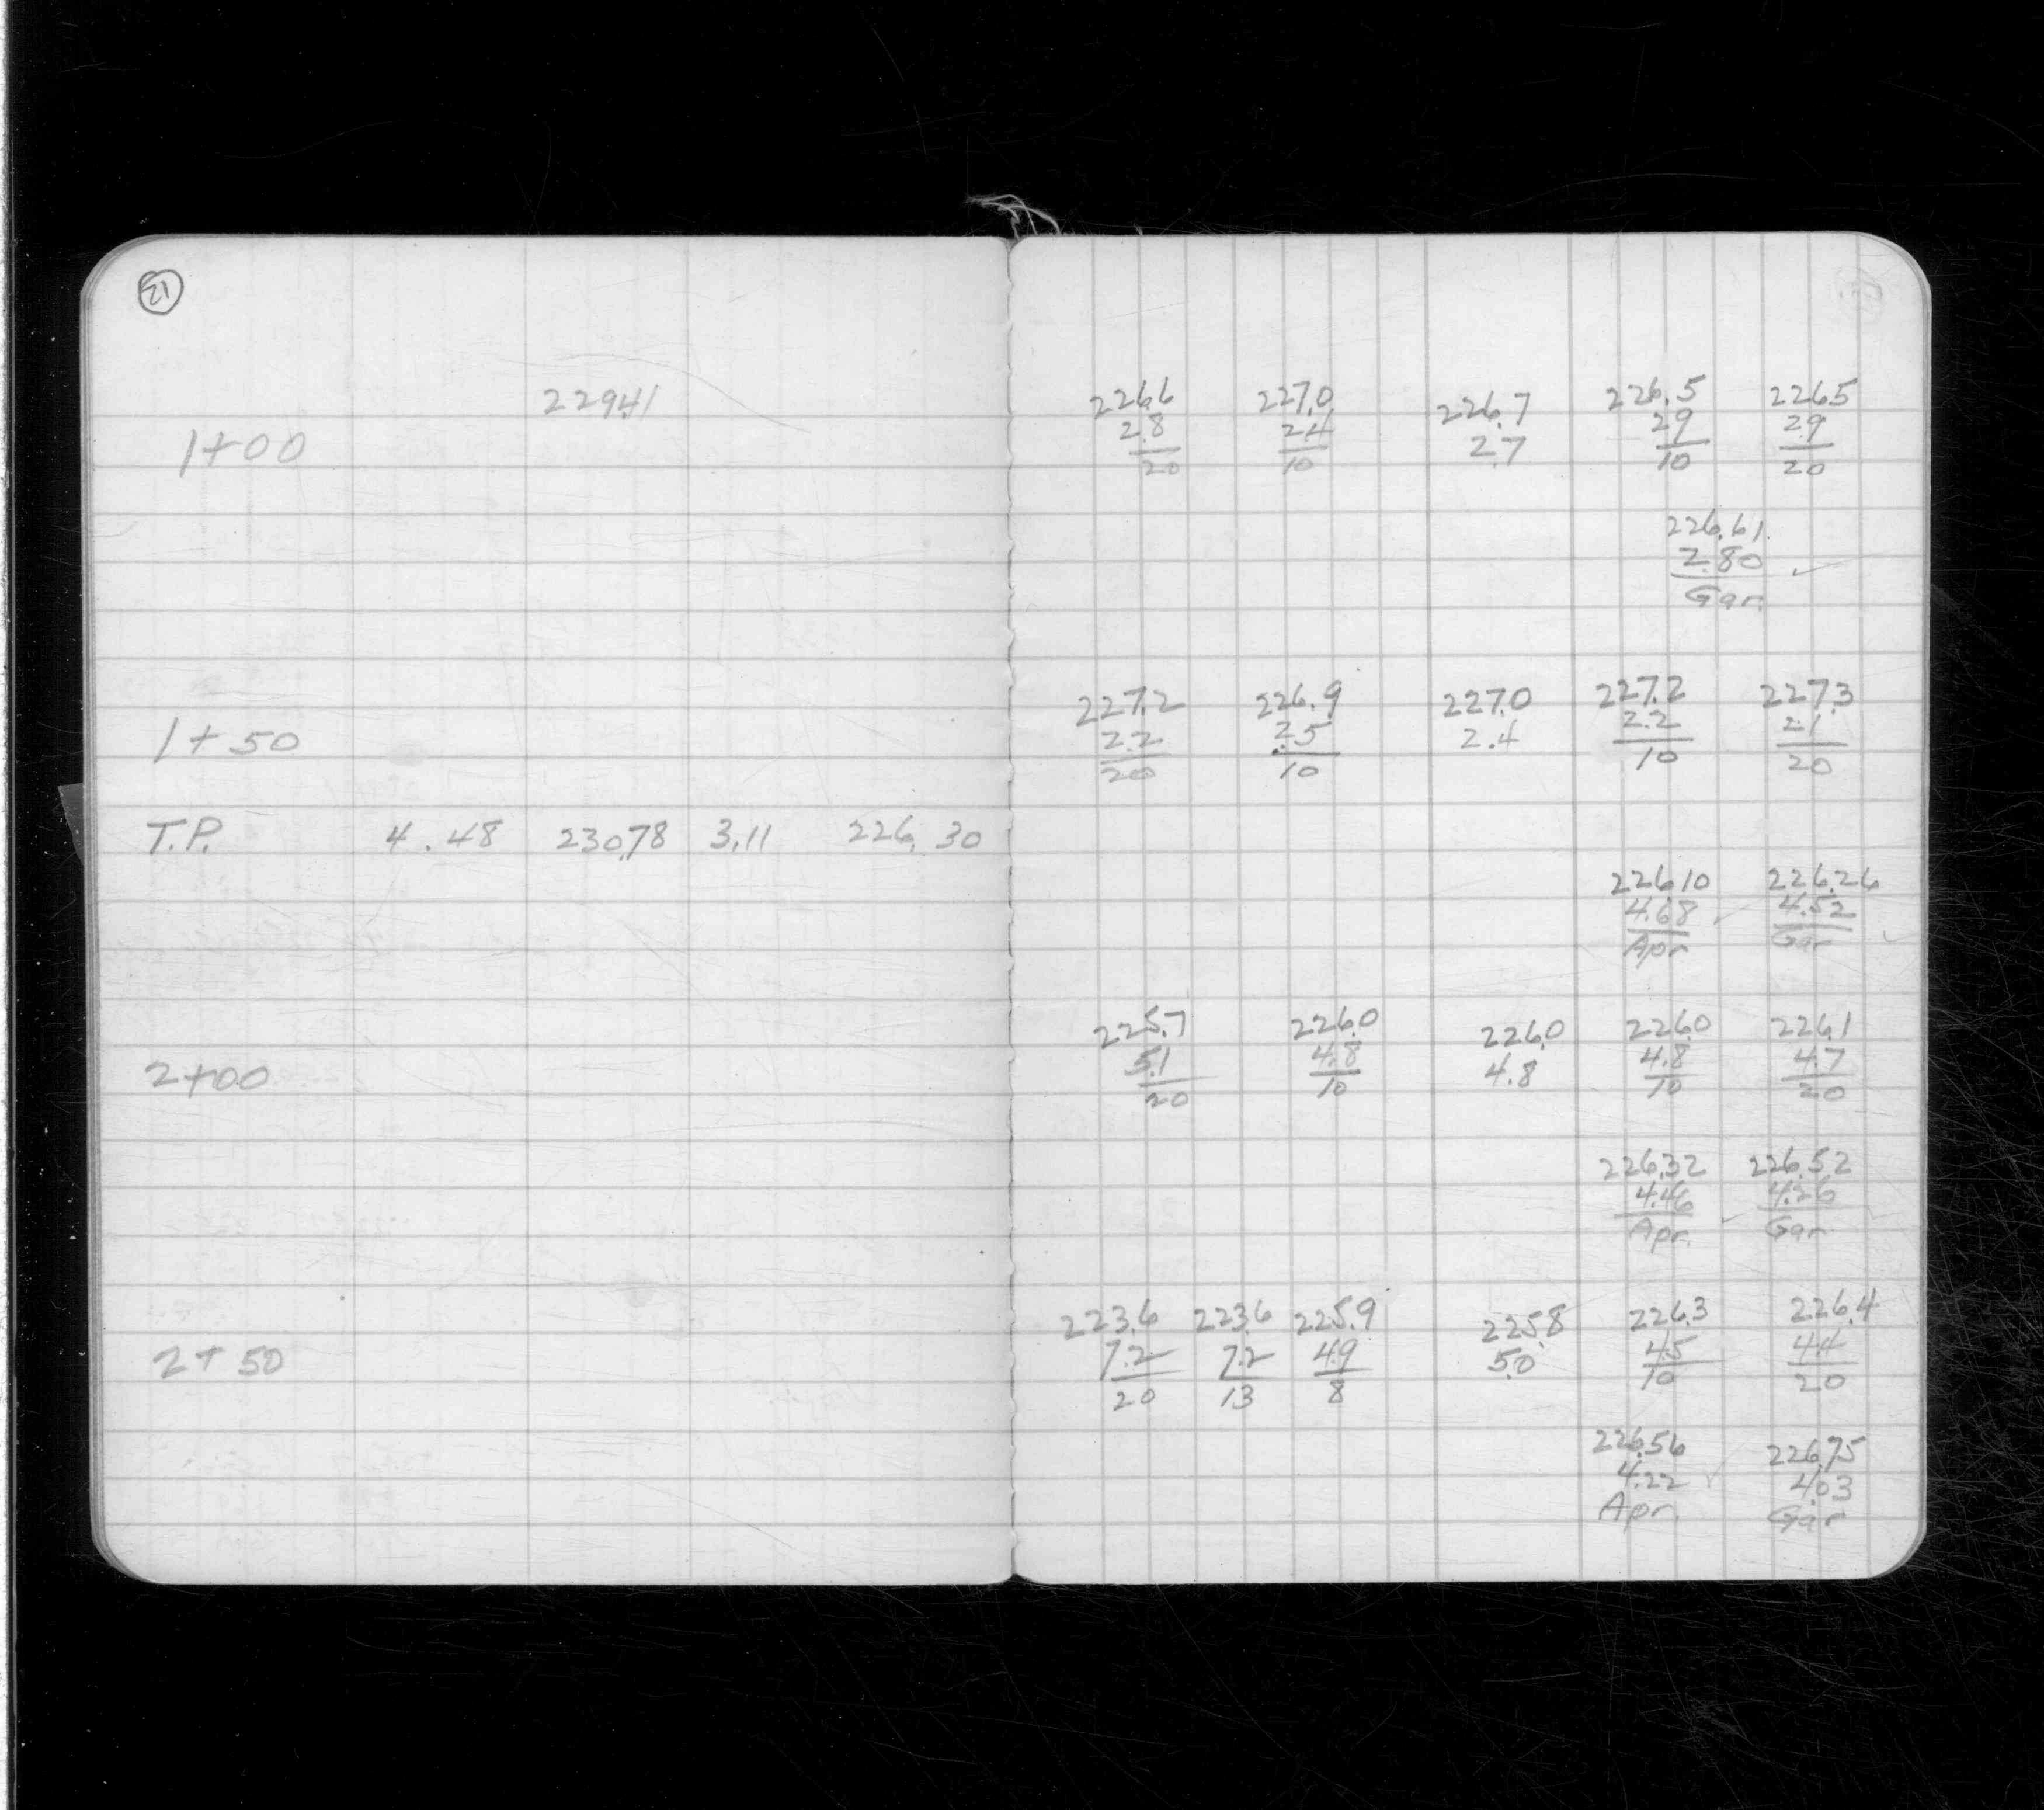 21
229.41
226.6 227.0 226.7 226.5 226.5
1+00 2.8 2.4 2.7 2.9 2.9
20 10 10 20
226.61
2.80 ✓
Gar.
227.2 226.9 227.0 227.2 227.3
1+50 2.2 2.5 2.4 2.2 2.1
20 10 10 20
T.P. 4.48 230.78 3.11 226.30
226.10 226.26
4.68 ✓ 4.52
Apr Gar ✓
225.7 226.0 226.0 226.0 226.1
2+00 5.1 4.8 4.8 4.8 4.7
20 10 10 20
226.32 226.52
4.46 4.26
Apr. ✓ Gar
223.6 223.6 225.9 225.8 226.3 226.4
2+50 7.2 7.2 4.9 5.0 4.5 4.4
20 13 8 10 20
226.56 226.75
4.22 ✓ 4.03
Apr. Gar